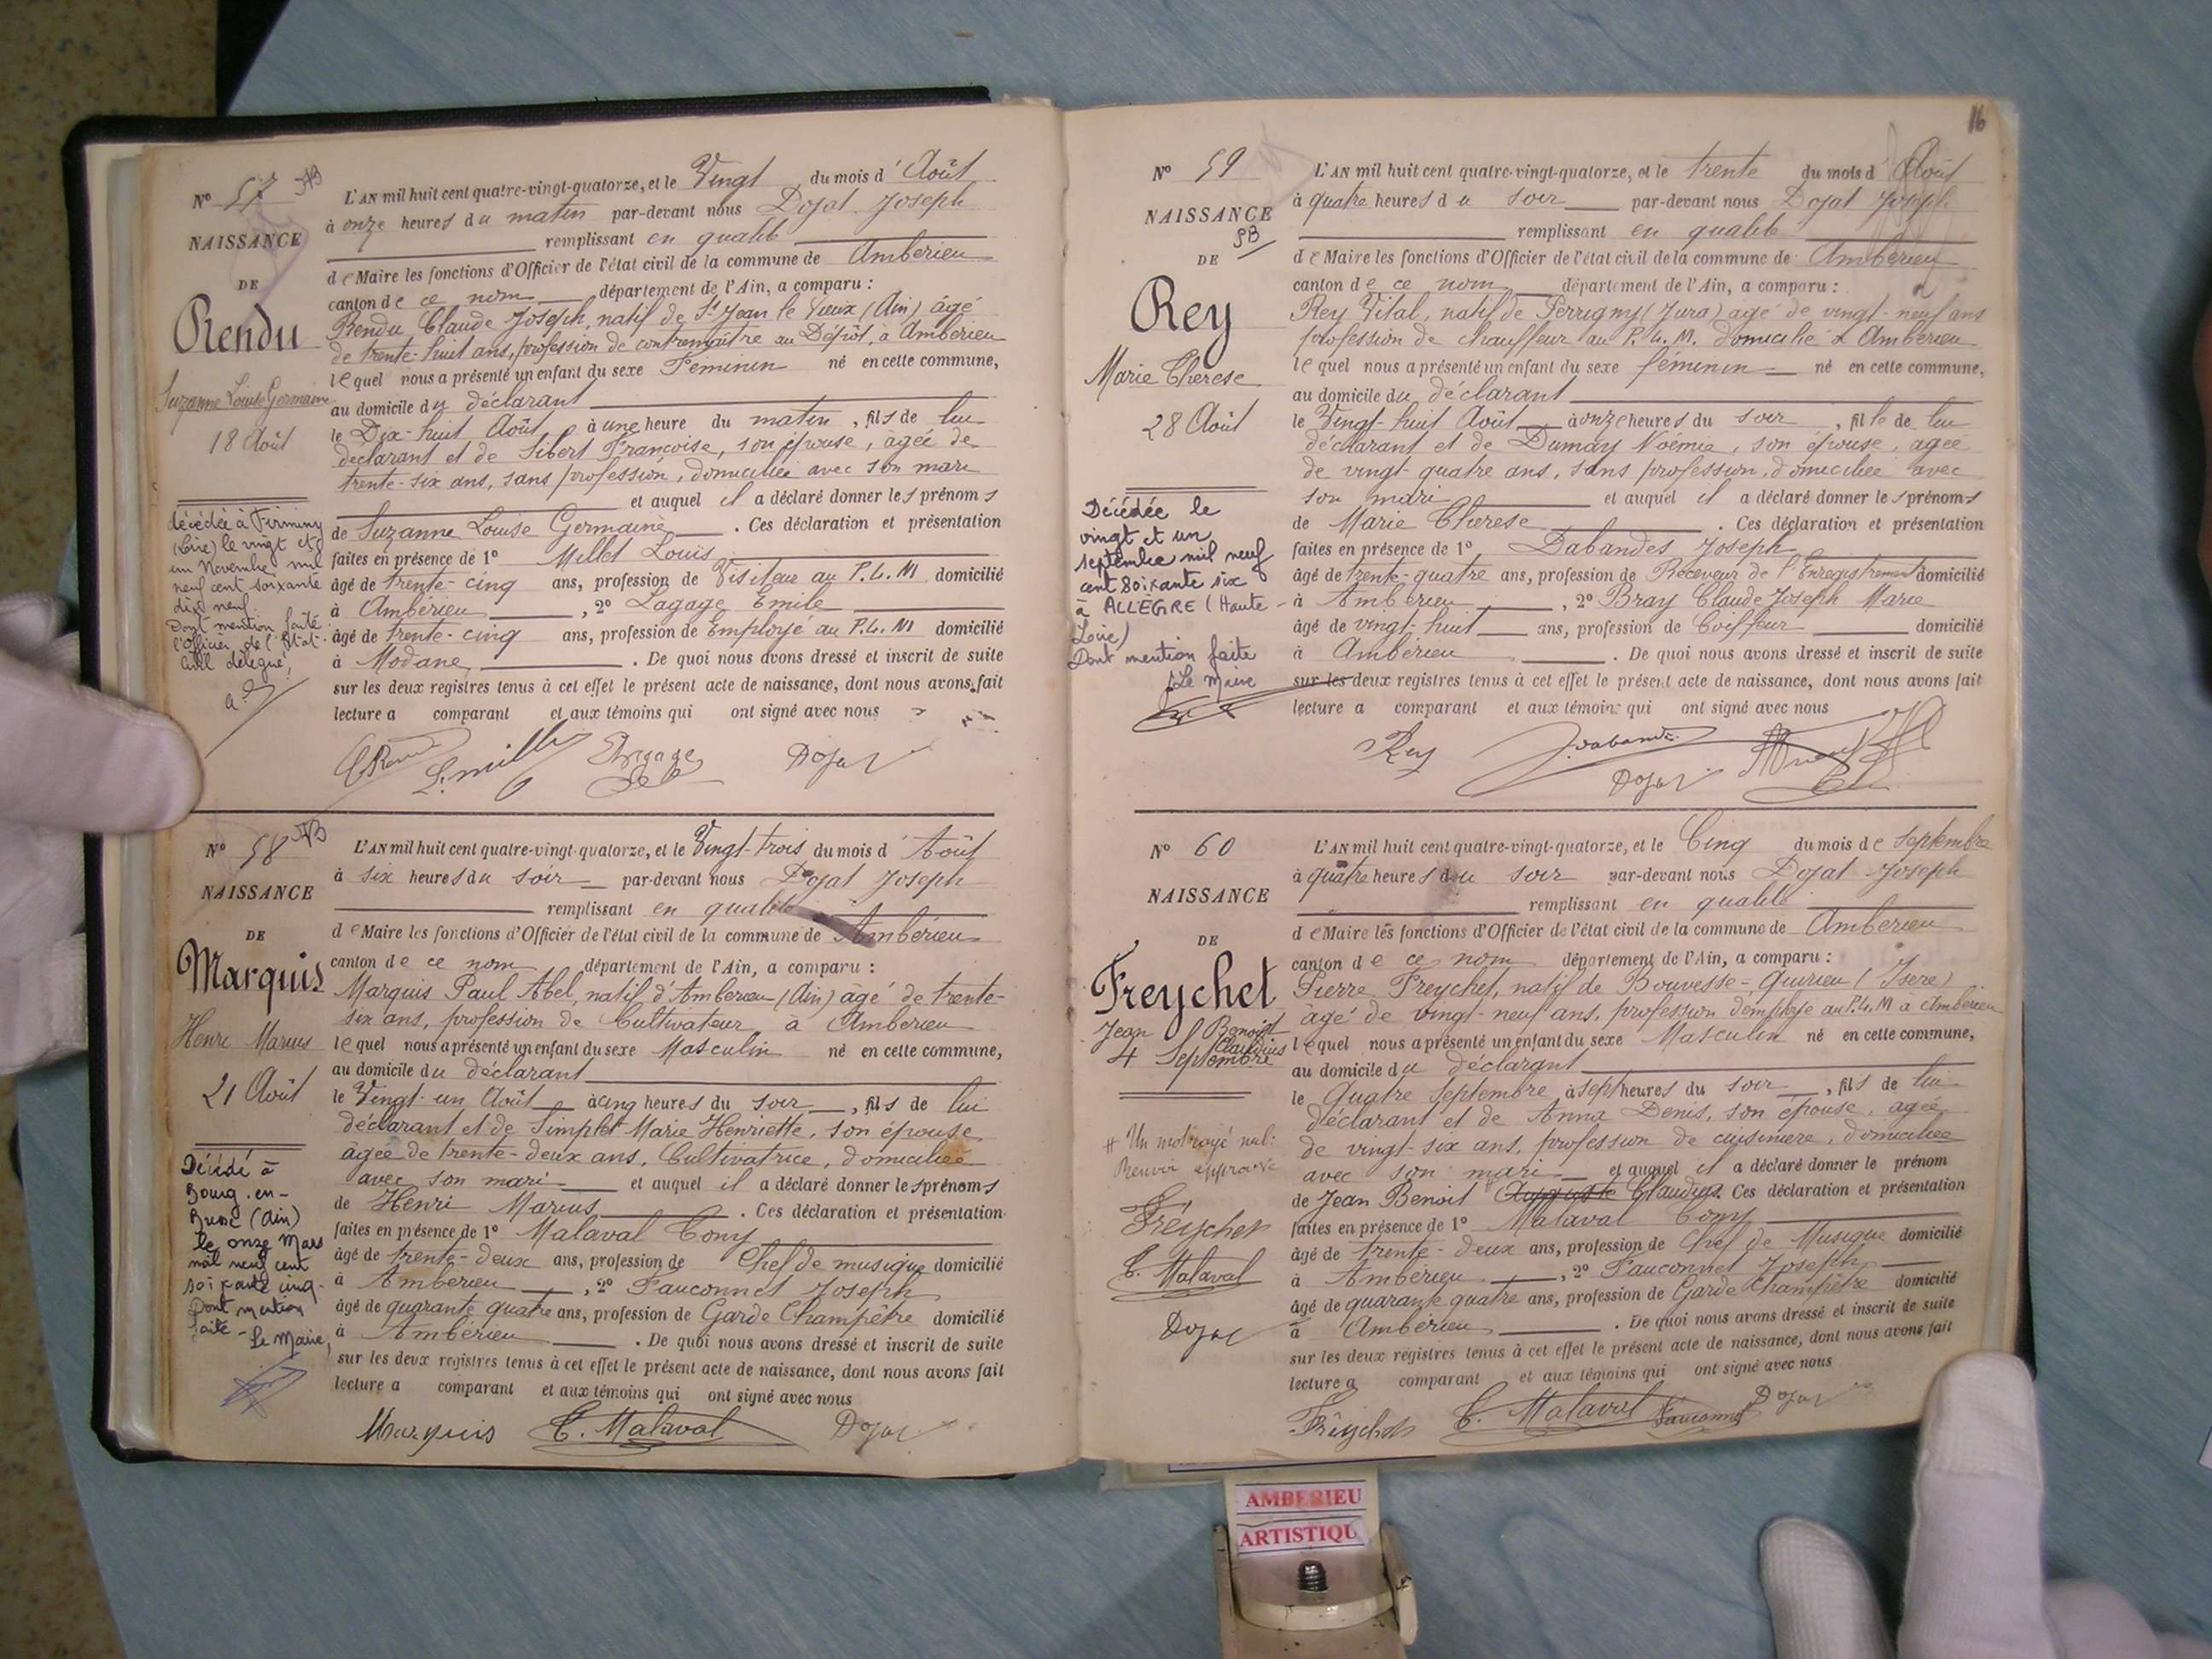 N° 57
NAISSANCE
DE
Rendu
Suzanne Louise Germaine
18 Août
décédée à Firminy
(Loire) le vingt et
un Novembre mil
neuf cent soixante
dix neuf.
Dont mention faite
l'Officier de l'Etat-
Civil délégué,
L'AN mil huit cent quatre-vingt-quatorze, et le Vingt du mois d' Août
à onze heures du matin par-devant nous Dojat Joseph
remplissant en qualité
de Maire les fonctions d'Officier de l'état civil de la commune de Ambérieu
canton de ce nom département de l'Ain, a comparu :
Rendu Claude Joseph, natif de St Jean le Vieux (Ain) âgé
de trente-huit ans, profession de contremaître au Dépôt, à Ambérieu
lequel nous a présenté un enfant du sexe Féminin né en cette commune,
au domicile du déclarant
le Dix-huit Août à une heure du matin, fils de lui
déclarant et de Sibert Françoise, son épouse, âgée de
trente-six ans, sans profession, domiciliée avec son mari
et auquel il a déclaré donner les prénoms
de Suzanne Louise Germaine. Ces déclaration et présentation
faites en présence de 1° Millet Louis
âgé de trente-cinq ans, profession de Visiteur au P.L.M domicilié
à Ambérieu, 2° Lagage Emile
âgé de trente-cinq ans, profession de Employé au P.L.M domicilié
à Modane. De quoi nous avons dressé et inscrit de suite
sur les deux registres tenus à cet effet le présent acte de naissance, dont nous avons fait
lecture a comparant et aux témoins qui ont signé avec nous
L. Millet Lagage Dojat
N° 58
NAISSANCE
DE
Marquis
Henri Marius
21 Août
Décédé à
Bourg-en-
Bresse (Ain)
le onze Mars
mil neuf cent
soixante cinq-
Dont mention
faite - Le Maire,
L'AN mil huit cent quatre-vingt-quatorze, et le Vingt-trois du mois d' Août
à six heures du soir par-devant nous Dojat Joseph
remplissant en qualité
de Maire les fonctions d'Officier de l'état civil de la commune de Ambérieu
canton de ce nom département de l'Ain, a comparu :
Marquis Paul Abel, natif d'Ambérieu (Ain) âgé de trente-
six ans, profession de Cultivateur à Ambérieu
lequel nous a présenté un enfant du sexe Masculin né en cette commune,
au domicile du déclarant
le Vingt-un Août à cinq heures du soir, fils de lui
déclarant et de Simplet Marie Henriette, son épouse
âgée de trente-deux ans, Cultivatrice, domiciliée
avec son mari et auquel il a déclaré donner les prénoms
de Henri Marius. Ces déclaration et présentation
faites en présence de 1° Malaval Tony
âgé de trente-deux ans, profession de Chef de musique domicilié
à Ambérieu, 2° Fauconnet Joseph
âgé de quarante quatre ans, profession de Garde Champêtre domicilié
à Ambérieu. De quoi nous avons dressé et inscrit de suite
sur les deux registres tenus à cet effet le présent acte de naissance, dont nous avons fait
lecture a comparant et aux témoins qui ont signé avec nous
Marquis T. Malaval Dojat
16
N° 59
NAISSANCE
DE
Rey
Marie Therese
28 Août
Décédée le
vingt et un
septembre mil neuf
cent soixante six
à ALLEGRE (Haute-
Loire)
Dont mention faite
Le Maire
L'AN mil huit cent quatre-vingt-quatorze, et le trente du mois d' Août
à quatre heures du soir par-devant nous Dojat Joseph
remplissant en qualité
de Maire les fonctions d'Officier de l'état civil de la commune de Ambérieu
canton de ce nom département de l'Ain, a comparu :
Rey Vital, natif de Perrigny (Jura) âgé de vingt-neuf ans
profession de chauffeur au P.L.M. domicilié à Ambérieu
lequel nous a présenté un enfant du sexe féminin né en cette commune,
au domicile du déclarant
le Vingt-huit Août à onze heures du soir, fille de lui
déclarant et de Dumay Noémie, son épouse, agée
de vingt-quatre ans, sans profession, domiciliée avec
son mari et auquel il a déclaré donner les prénoms
de Marie Therese. Ces déclaration et présentation
faites en présence de 1° Dabandes Joseph
âgé de trente-quatre ans, profession de Receveur de l'Enregistrement domicilié
à Ambérieu, 2° Bray Claude Joseph Marie
âgé de vingt-huit ans, profession de Coiffeur domicilié
à Ambérieu. De quoi nous avons dressé et inscrit de suite
sur les deux registres tenus à cet effet le présent acte de naissance, dont nous avons fait
lecture a comparant et aux témoins qui ont signé avec nous
Rey Dojat
N° 60
NAISSANCE
DE
Freychet
Jean Benoist
Claudius
4 Septembre
# Un mot rayé nul:
Renvoi approuvé
Freychet
T. Malaval
Dojat
L'AN mil huit cent quatre-vingt-quatorze, et le Cinq du mois de Septembre
à quatre heures du soir par-devant nous Dojat Joseph
remplissant en qualité
de Maire les fonctions d'Officier de l'état civil de la commune de Ambérieu
canton de ce nom département de l'Ain, a comparu :
Pierre Freychet, natif de Bouvesse-Quirieu (Isère)
âgé de vingt-neuf ans, profession d'employé au P.L.M à Ambérieu
lequel nous a présenté un enfant du sexe Masculin né en cette commune,
au domicile du déclarant
le Quatre Septembre à sept heures du soir, fils de lui
déclarant et de Anna Denis, son épouse, agée
de vingt-six ans, profession de cuisinière, domiciliée
avec son mari et auquel il a déclaré donner le prénom
de Jean Benoit Auguste Claudius. Ces déclaration et présentation
faites en présence de 1° Malaval Tony
âgé de trente-deux ans, profession de Chef de Musique domicilié
à Ambérieu, 2° Fauconnet Joseph
âgé de quarante quatre ans, profession de Garde Champêtre domicilié
à Ambérieu. De quoi nous avons dressé et inscrit de suite
sur les deux registres tenus à cet effet le présent acte de naissance, dont nous avons fait
lecture a comparant et aux témoins qui ont signé avec nous
Freychet T. Malaval Fauconnet Dojat
AMBERIEU
ARTISTIQU